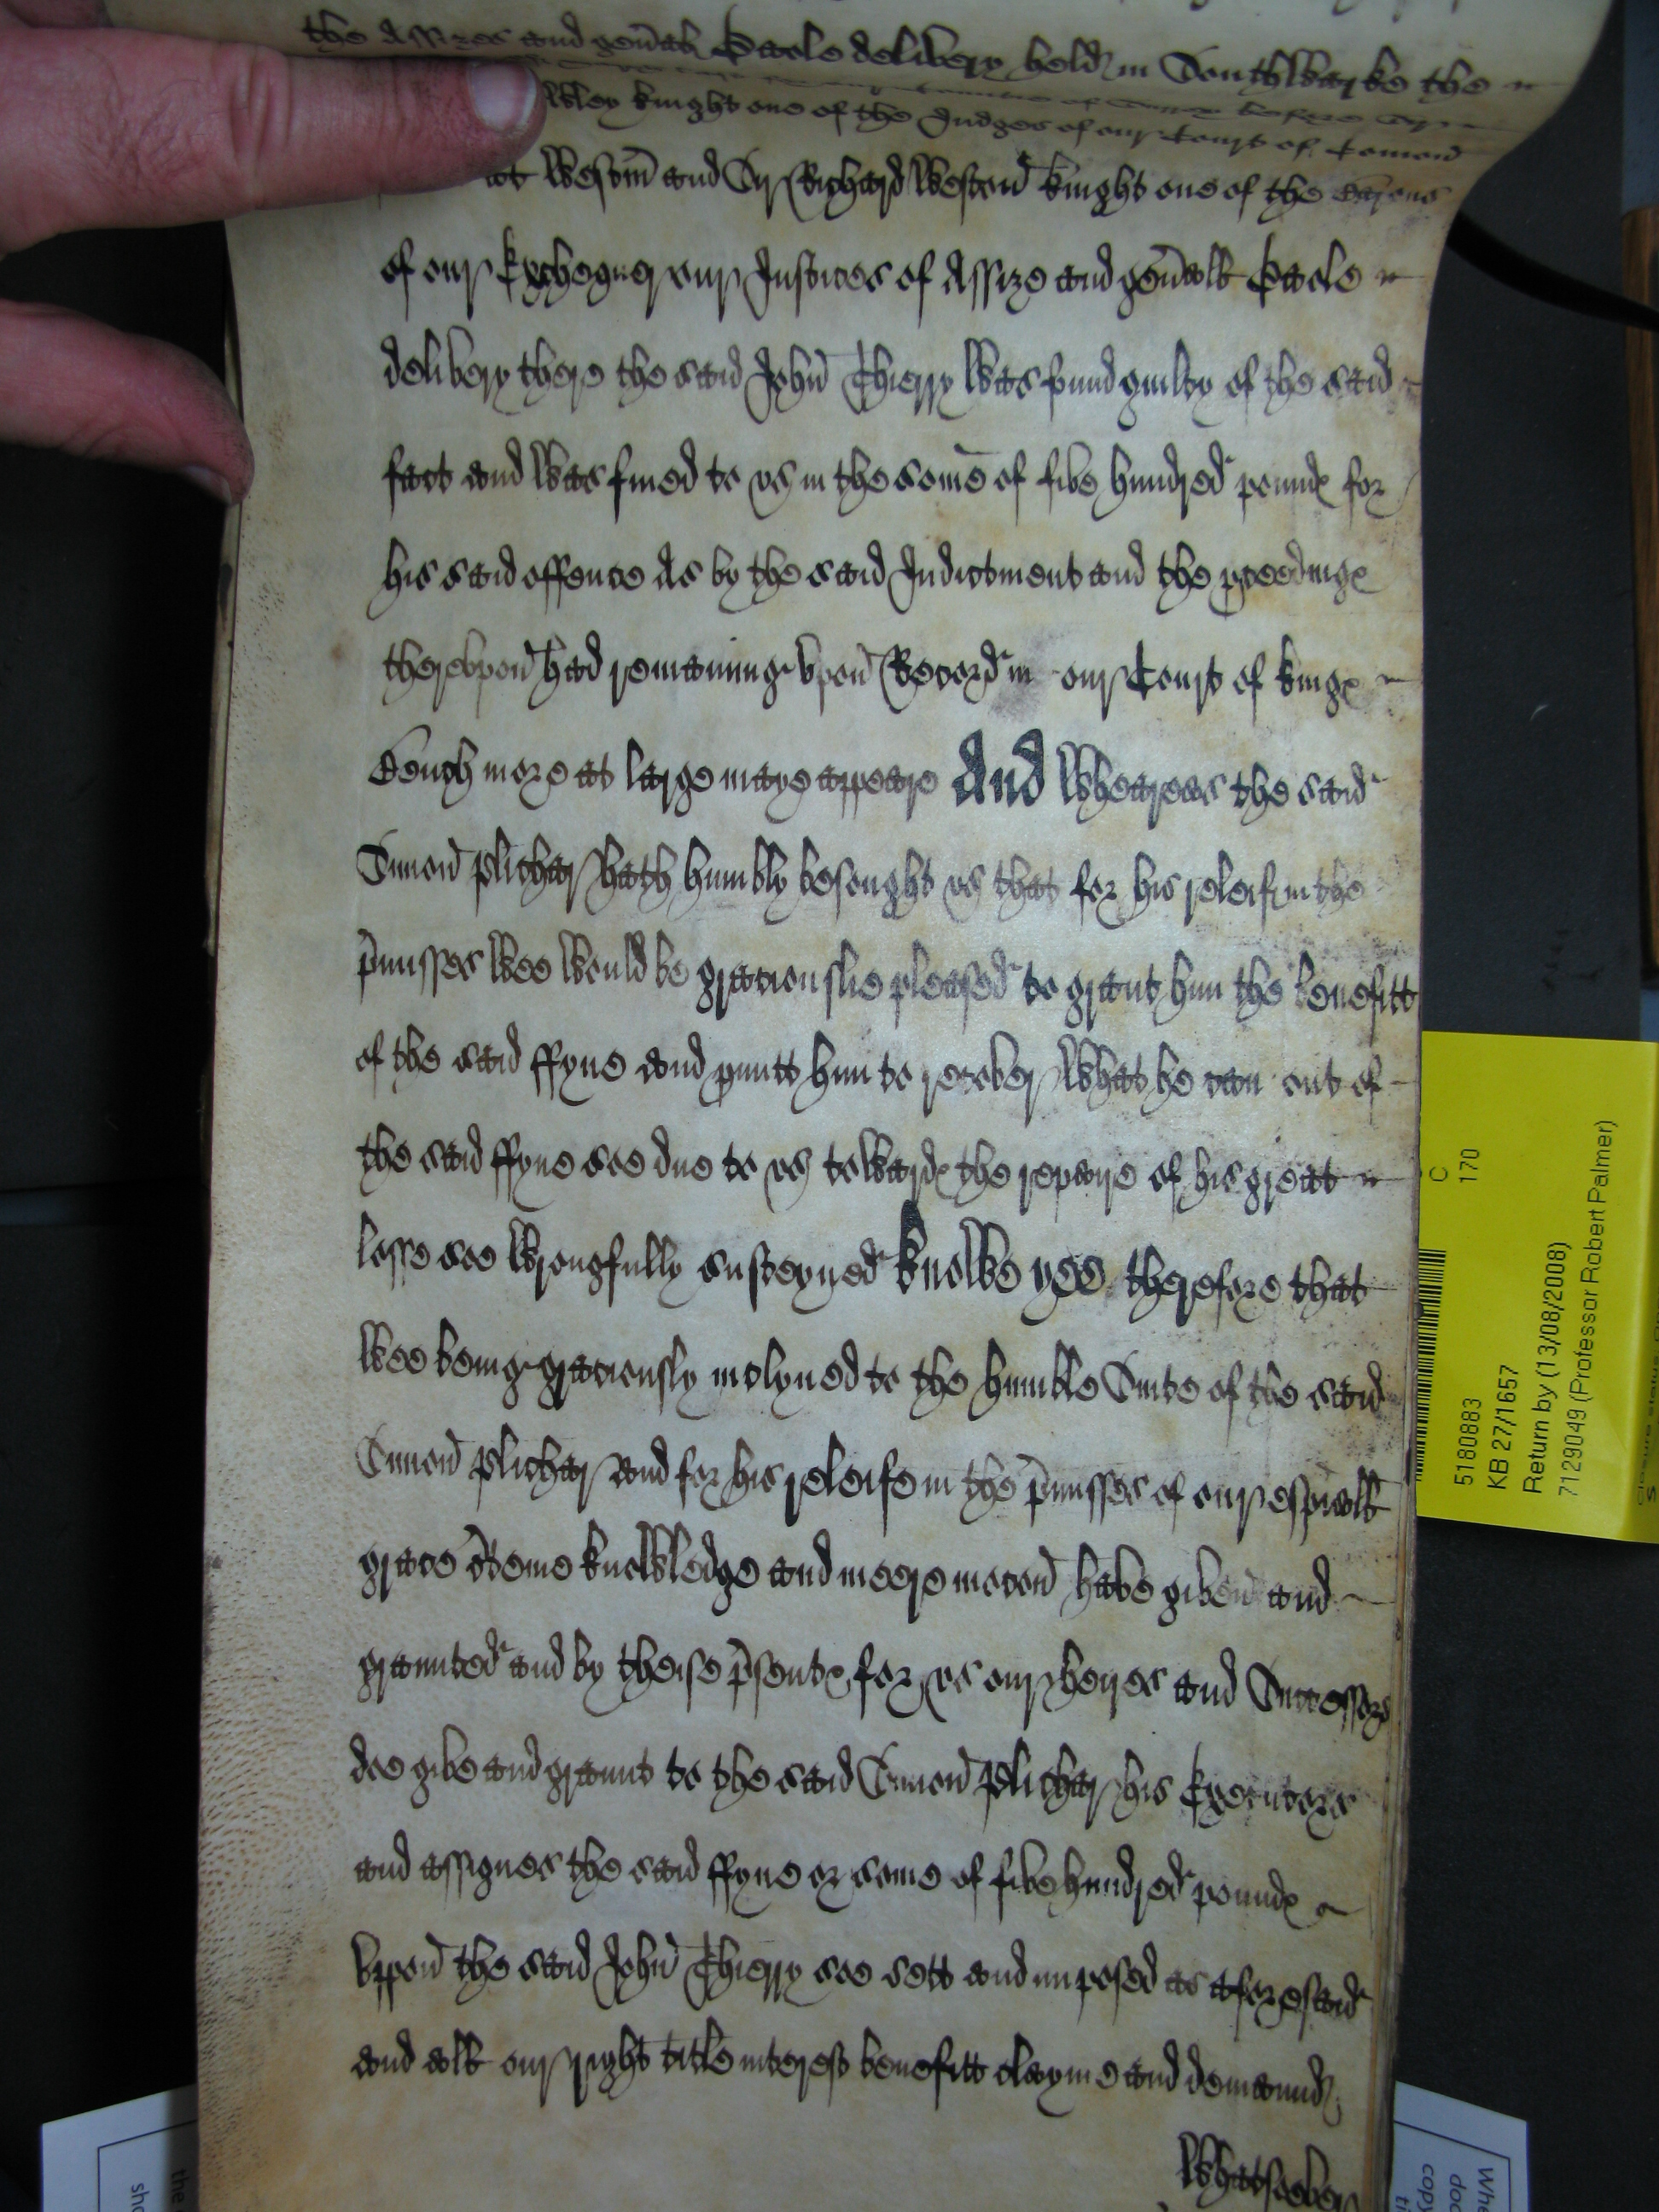 the Assizes and gen̄all Gaole delivery held in Southwarke the
knight one of the Judges of our Court of Comon
at Westm̄ and Sr Richard Weston knight one of the Barons
of our Exchequer our Justices of Assize and gen̄all Gaole
delivery there the said John Thierry was fund guilty of the said
fact and was fined to vs in the some of five hundred pounds for
his said offence As by the said Indictment and the p̱ceedings
therevpon had remaining vpon Record in our Court of kings
Bench more at large maye appeare And Whereas the said
Simon Plichar hath humbly besought vs that for his releif in the
p̄misses wee would be graciouslie pleased to graunt him the benefitt
of the said ffyne and p̱mitt him to recover what he can out of
the said ffyne soe due to vs towards the repaire of his great
losse soe wrongfully susteyned Knowe yee therefore that
wee being graciously inclyned to the humble Suite of the said
Simon Plichar and for his releife in the p̄misses of our esp̄iall
grace c̄teine knowledge and meere moc̄on have given and
graunted and by theise p̄sents for vs our heires and Successors
doe give and graunt to the said Simon Plichar his Executors
and assignes the said ffyne or some of five hundred pounds
vppon the said John Thierry soe sett and imposed as aforesaid
and all our right title interest benefitt clayme and demaund
Whatsoever
C
170
5180883
KB 27/1657
Return by (13/08/2008)
7129049 (Professor Robert Palmer)